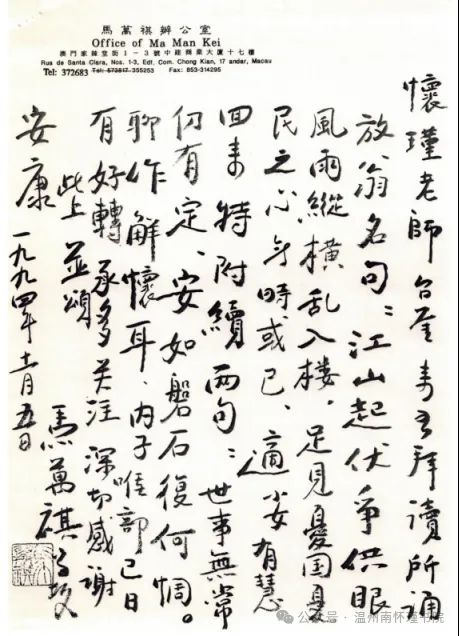 馬萬祺辦公室
Office of Ma Man Kei
澳門家辣堂街1-3號中建商業大廈十七樓
Rua de Santa Clara, Nos. 1-3, Edf. Com. Chong Kian, 17 andar, Macau
Tel: 372683 Tel: 573817 355253 Fax: 853-314295
懷瑾老師台鑒 拜讀所誦
放翁名句：江山起伏爭供眼
風雨縱橫乱入樓。足見憂国憂
民之心 時或已、適 有慧
回來特附續两句：世事無常
仍有定、安如磐石復何惆。
聊作解懷耳、内子喉部已日
有好轉 承多关注 深切感謝
此上 並頌
安康
馬萬祺
一九九四年十一月五日
公众号 · 温州南怀瑾书院